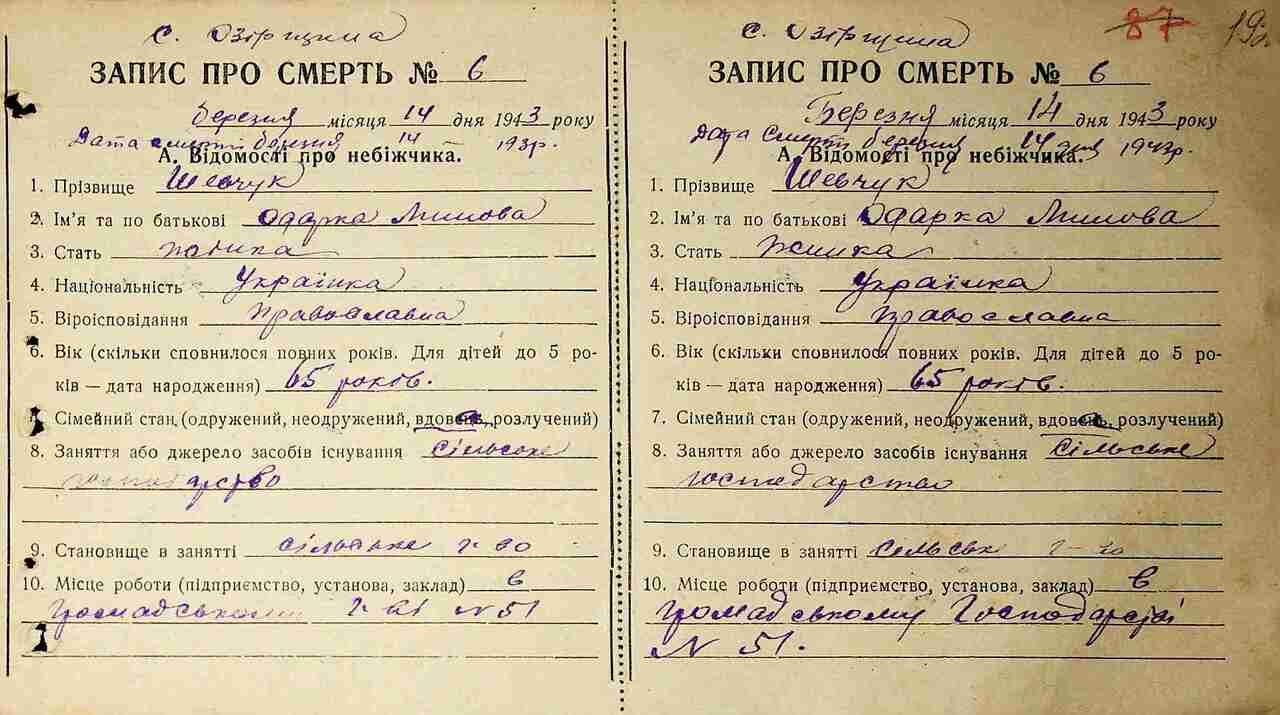 с. Озірщина
ЗАПИС ПРО СМЕРТЬ № 6
березня місяця 14 дня 1943 року
Дата смерті березня 14 193р.
А. Відомості про небіжчика.
1. Прізвище Шевчук
2. Ім'я та по батькові Одарка
3. Стать жінка
4. Національність Українка
5. Віроісповідання Православна
6. Вік (скільки сповнилося повних років. Для дітей до 5 ро-
ків — дата народження) 65 років.
7. Сімейний стан (одружений, неодружений, вдова, розлучений)
8. Заняття або джерело засобів існування сільське
господарство
9. Становище в занятті сільське г-во
10. Місце роботи (підприємство, установа, заклад) в
громадському г-ві № 51
87 19
с. Озірщина
ЗАПИС ПРО СМЕРТЬ № 6
Березня місяця 14 дня 1943 року
Дата Смерти березня 14 дня 1943р.
А. Відомості про небіжчика.
1. Прізвище Шевчук
2. Ім'я та по батькові Одарка
3. Стать Жінка
4. Національність Українка
5. Віроісповідання православна
6. Вік (скільки сповнилося повних років. Для дітей до 5 ро-
ків — дата народження) 65 років.
7. Сімейний стан (одружений, неодружений, вдова, розлучений)
8. Заняття або джерело засобів існування сільське
господарство
9. Становище в занятті сельськ г-во
10. Місце роботи (підприємство, установа, заклад) в
громадському Господарстві
№ 51.